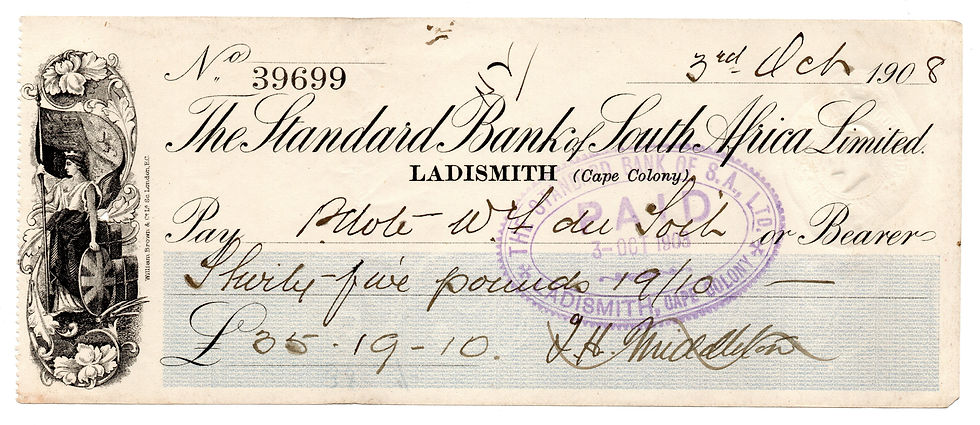 No 39699
3rd Oct 1908
The Standard Bank of South Africa Limited.
LADISMITH (Cape Colony)
Pay P Note W. F du Toit or Bearer
Thirty-five pounds 19/10 —
£ 35-19-10.
J. H. Middleton
THE STANDARD BANK OF S.A., LTD.
PAID
3-OCT 1908
LADISMITH, CAPE COLONY
William Brown & Co Ld Sc London, E.C.